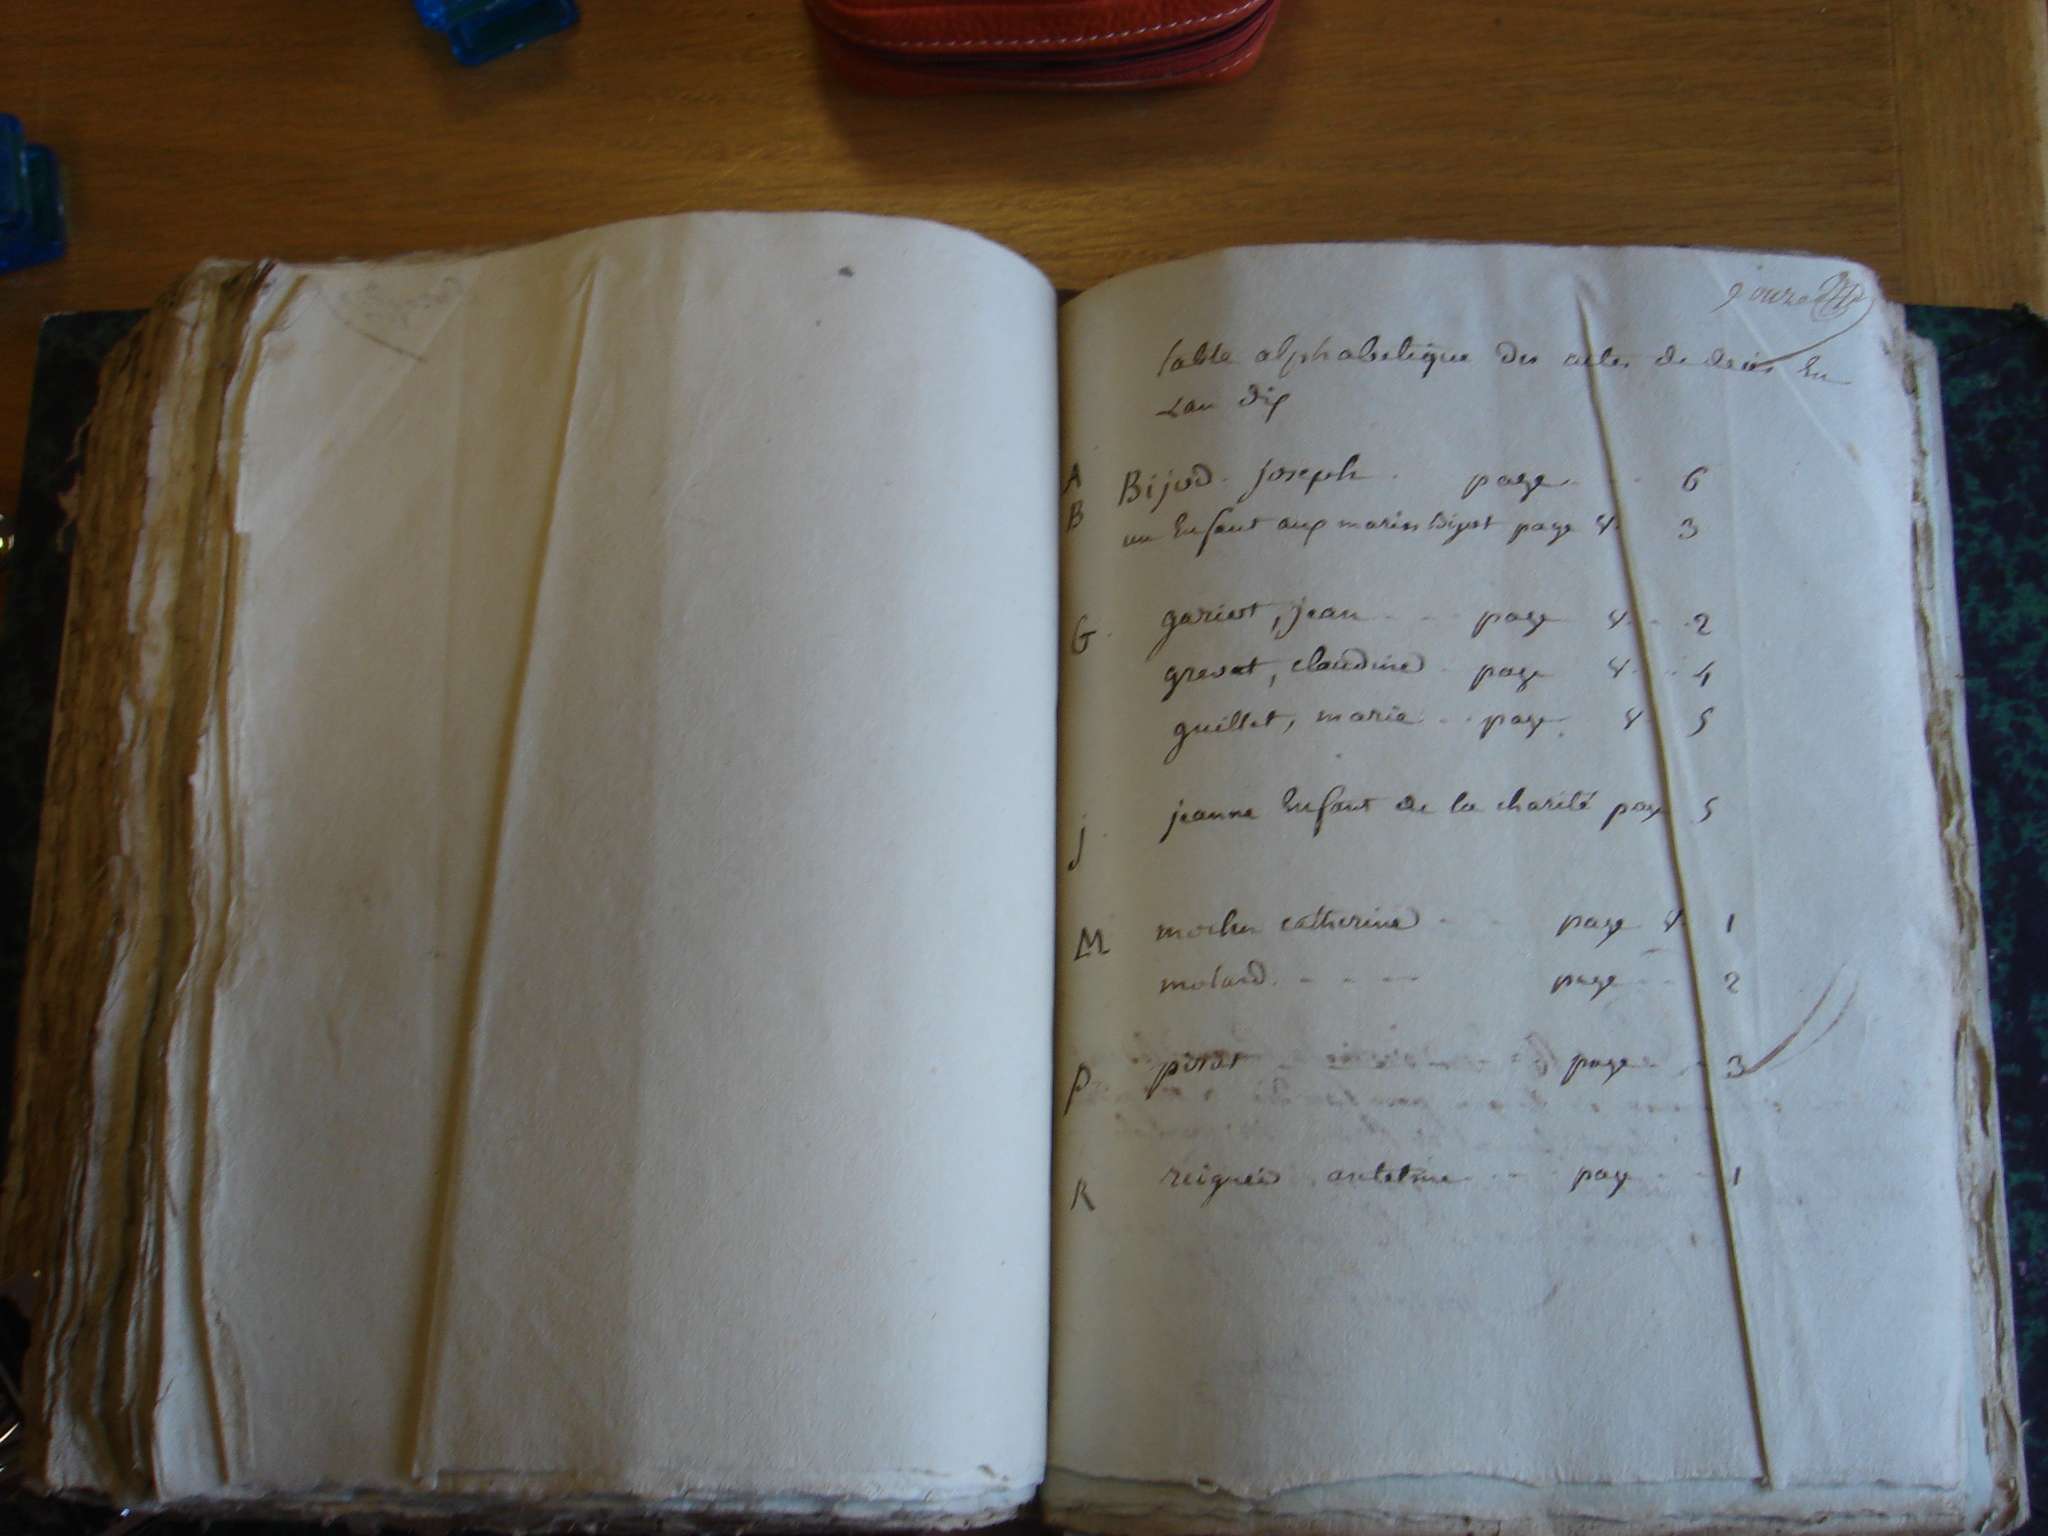 table alphabetique des actes de deces en
Lan dix
A
Bijod. joseph. page 6
B
un Enfant aux marin bijot page 4 3
G gariot, jean page 4 2
grevat, claudine page 4 4
guillet, marie page 4 5
j jeanne Enfant de la charité page 5
M catherine page 4 1
molard page 2
P pirat page 3
R antelme page 1